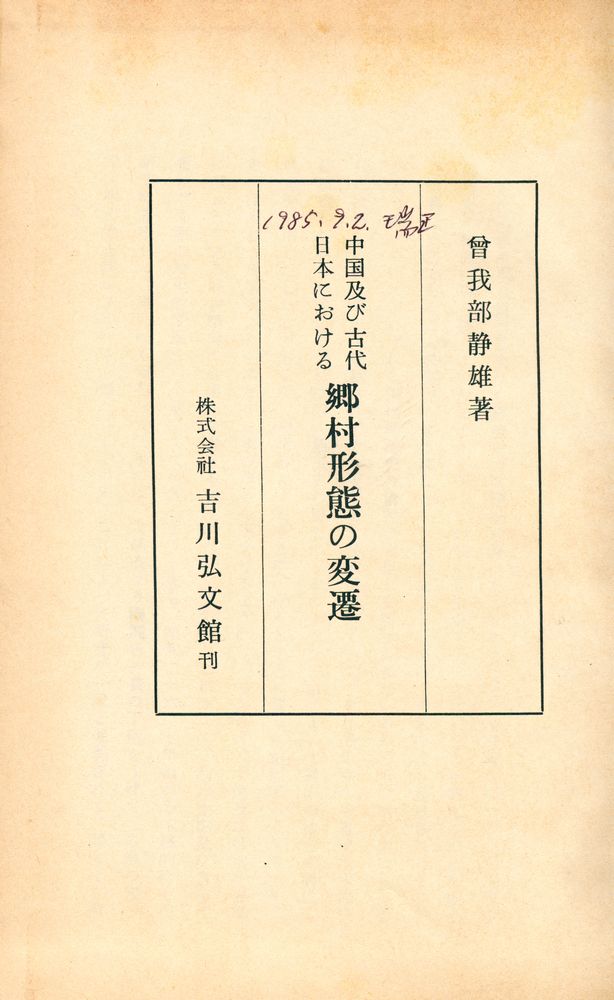 曾我部静雄著
1985.9.2. 瑞正
中国及び古代
日本における
郷村形態の変遷
株式会社 吉川弘文館刊